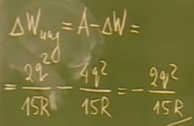 ΔW_инд = A - ΔW =
= 2q²/15R - 4q²/15R = - 2q²/15R